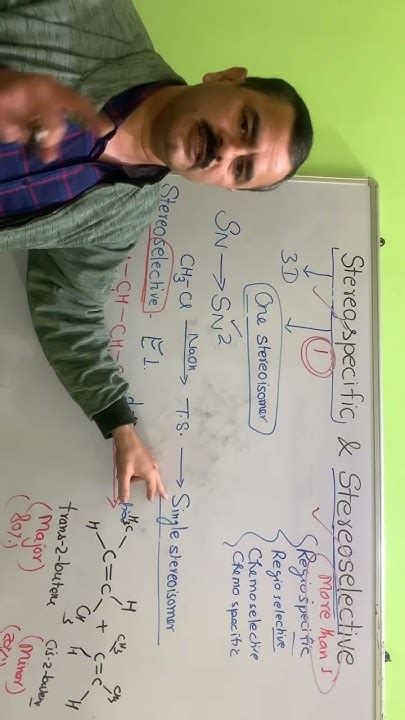 Stereospecific & Stereoselective
3D
1
More than 1
One stereoisomer
Regiospecific
Regioselective
Chemoselective
Chemospecific
SN → SN2
CH3-Cl NaOH → T.S. → Single stereoisomer
Stereoselective - E1.
-CH-CH-
H3C H
C=C +
H CH3
CH3 CH3
C=C
H H
trans-2-butene
(Major)
(80%)
cis-2-butene
(Minor)